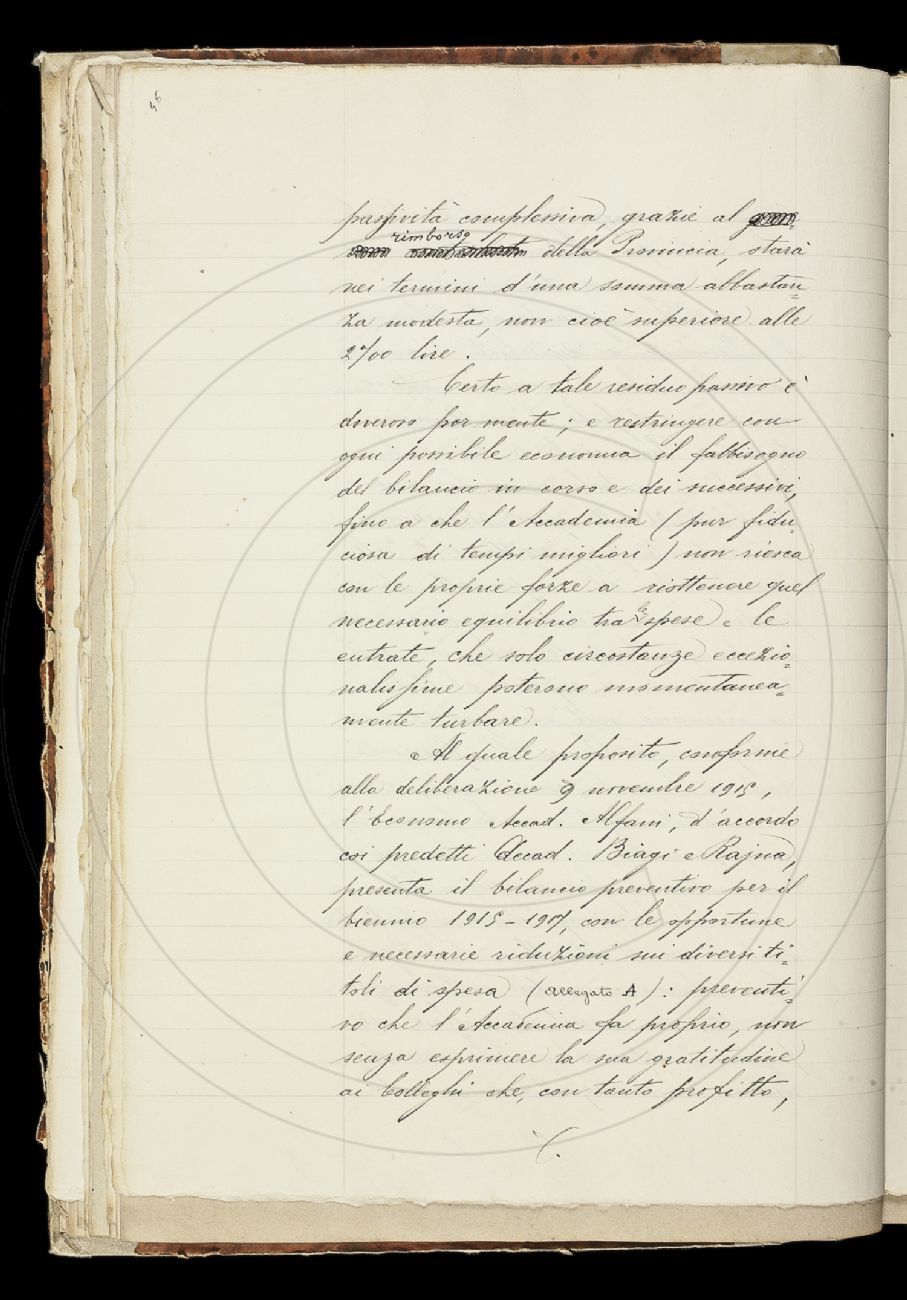 46
passività complessiva, grazie al
rimborso
della Provincia, starà
nei termini d'una somma abbastan=
za modesta, non cioè superiore alle
2700 lire.
Certo a tale residuo passivo è
doveroso por mente; e restringere con
ogni possibile economia il fabbisogno
del bilancio in corso e dei successivi,
fino a che l'Accademia (pur fidu=
ciosa di tempi migliori) non riesca
con le proprie forze a riottenere quel
necessario equilibrio tra le spese e le
entrate, che solo circostanze eccezio=
nalissime poterono momentanea=
mente turbare.
Al quale proposito, conforme
alla deliberazione 9 novembre 1915,
l'Economo Accad. Alfani, d'accordo
coi predetti Accad. Biagi e Rajna,
presenta il bilancio preventivo per il
biennio 1915-1917, con le opportune
e necessarie riduzioni sui diversi ti=
toli di spesa (allegato A): preventi=
vo che l'Accademia fa proprio, non
senza esprimere la sua gratitudine
ai Colleghi che, con tanto profitto,